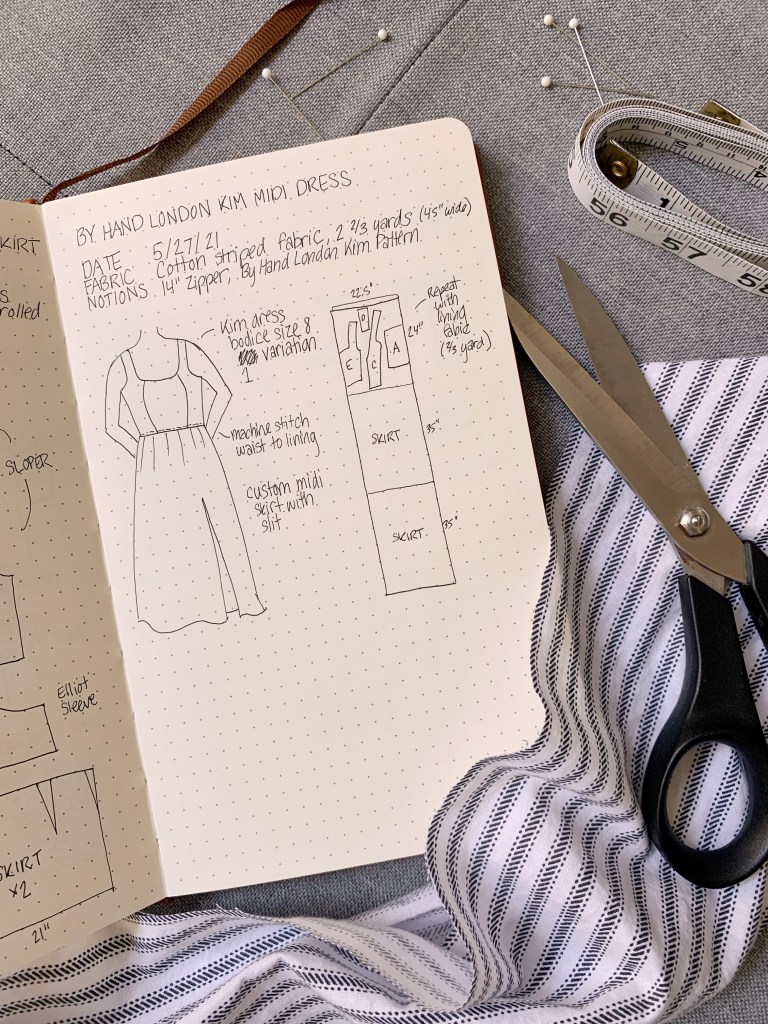 BY HAND LONDON KIM MIDI DRESS
DATE 5/27/21
FABRIC Cotton striped fabric, 2 2/3 yards (45" wide)
NOTIONS 14" Zipper, By Hand London Kim Pattern.
Kim dress
bodice size 8
variation
1
machine stitch
waist to lining
custom midi
skirt with
slit
22.5"
D
E
C
A
24"
Repeat
with
lining
fabric
(2/3 yard)
SKIRT
35"
SKIRT.
35"
KIRT
rolled
SLOPER
Elliot
Sleeve
SKIRT
x2
21"
56
57
58
1